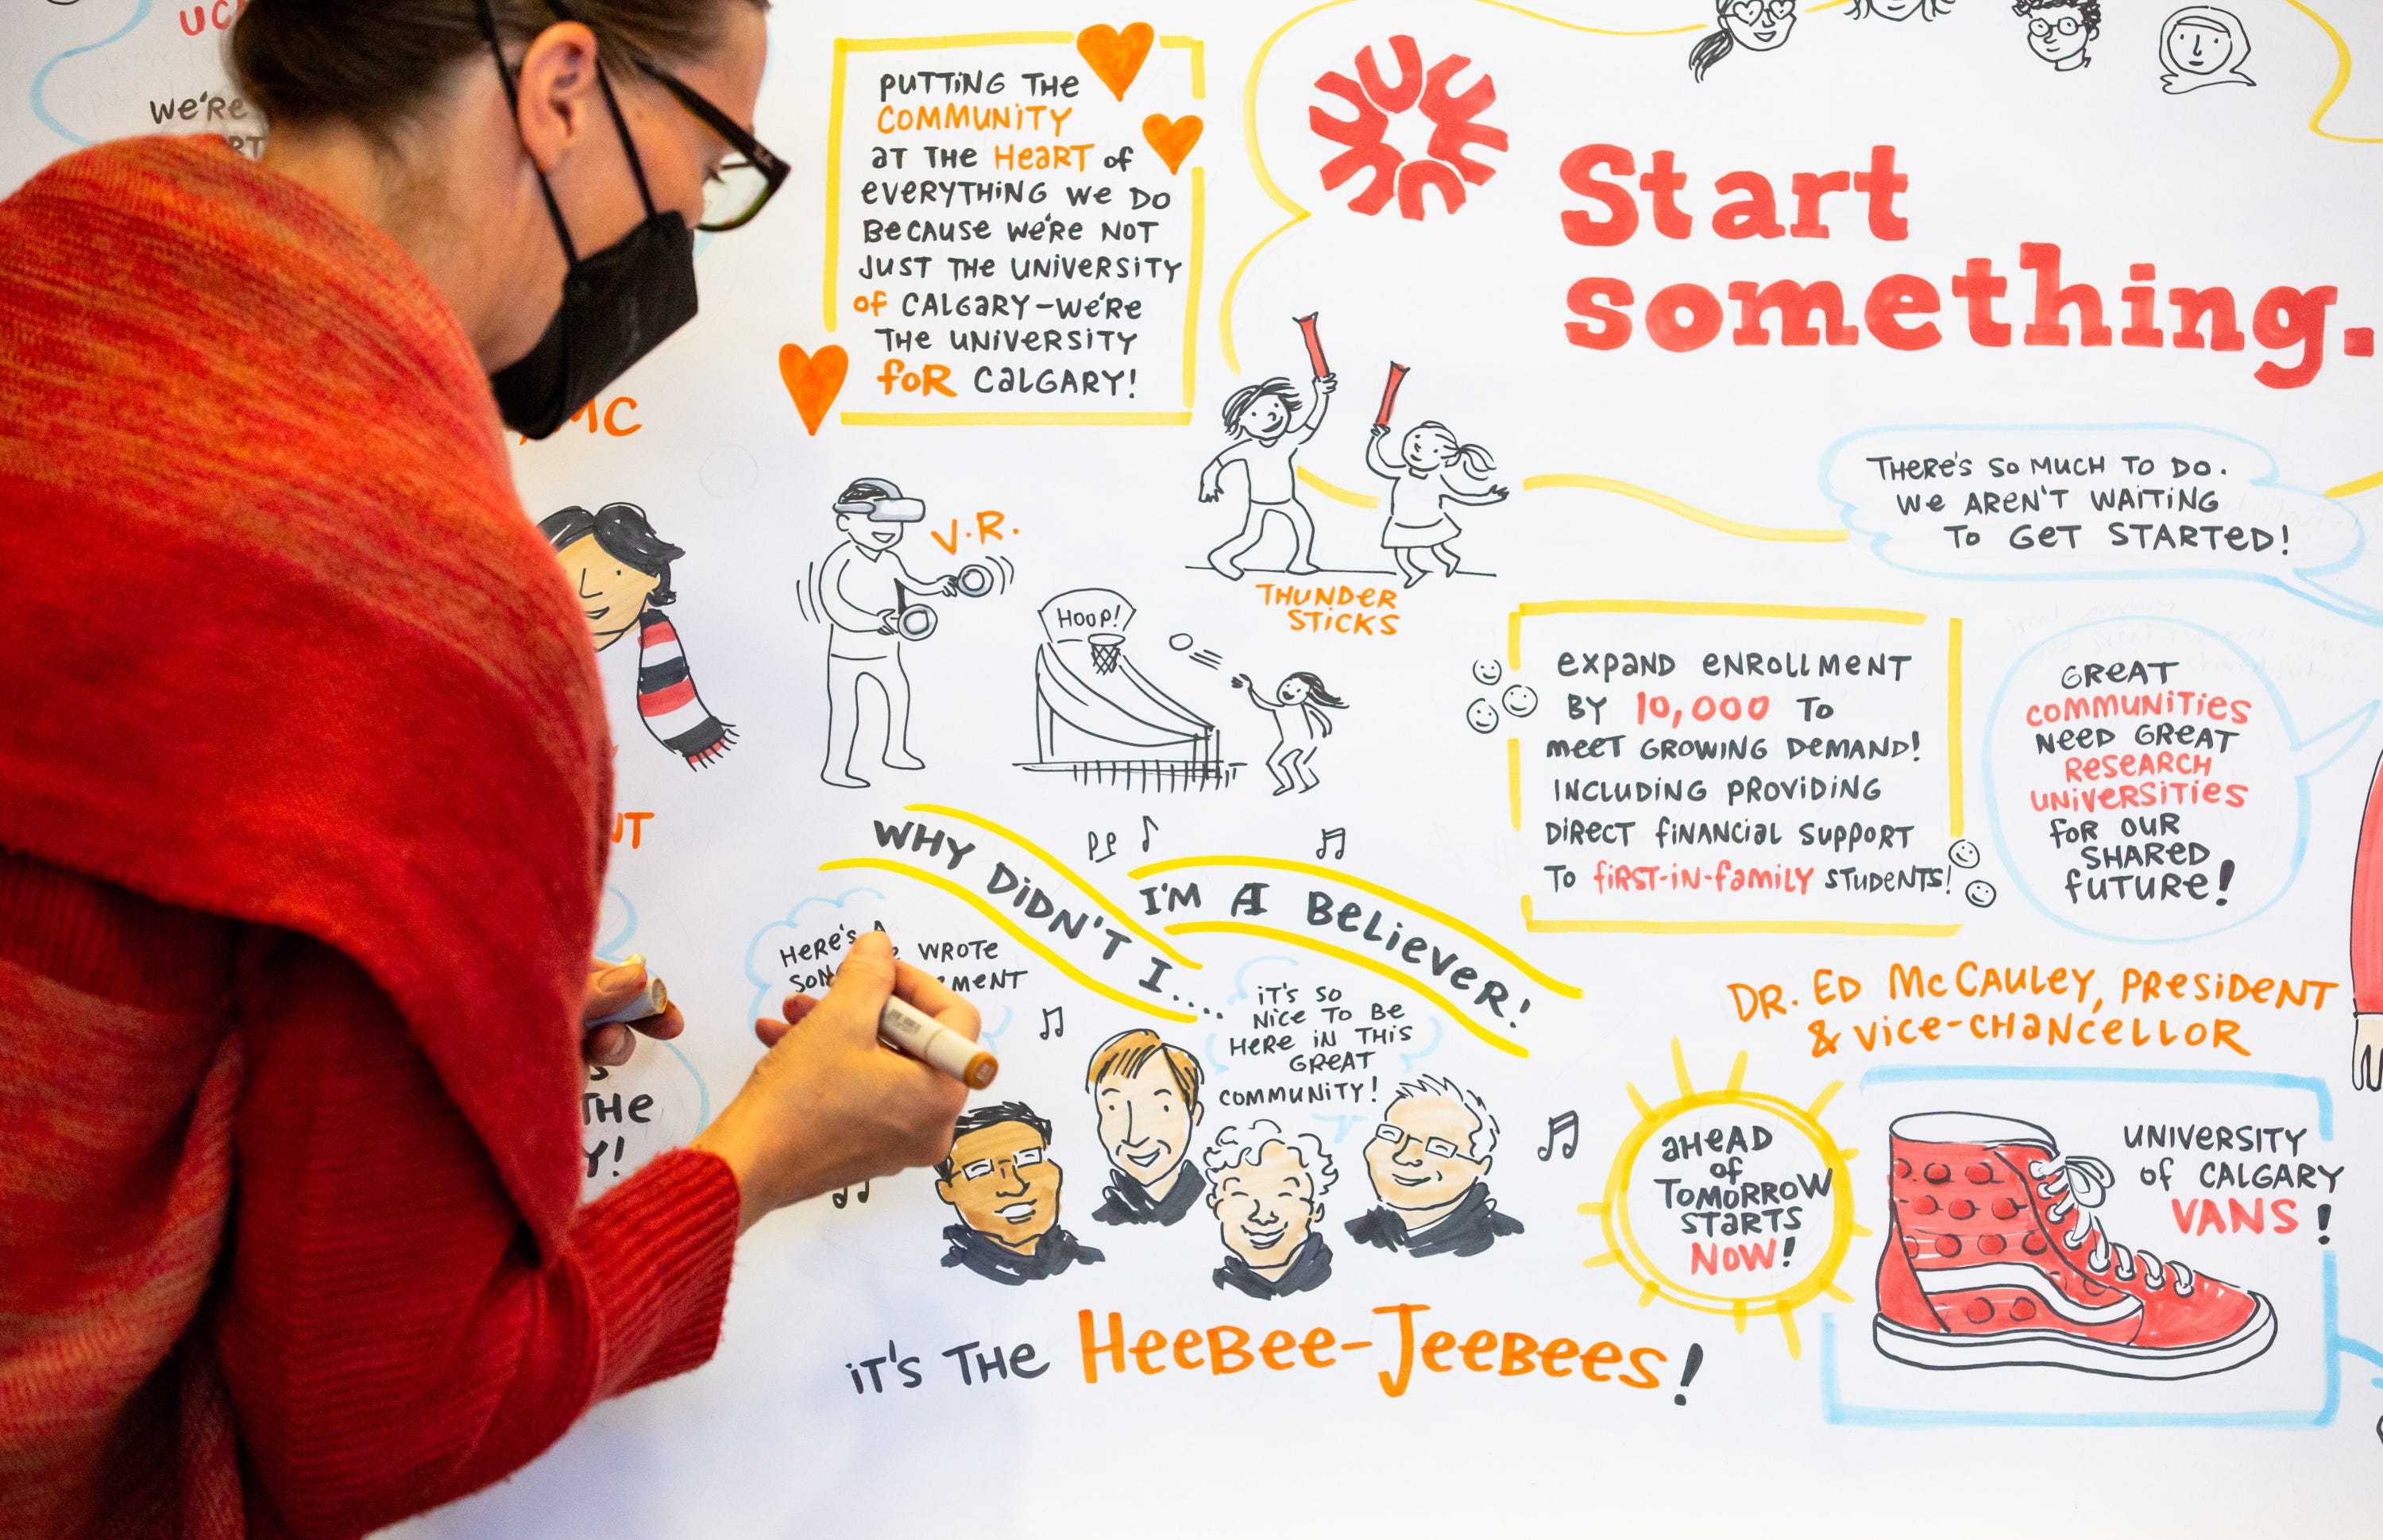 WE'RE
MC
PUTTING THE
COMMUNITY
AT THE HEART of
EVERYTHING WE DO
BECAUSE WE'RE NOT
JUST THE UNIVERSITY
of CALGARY—WE'RE
THE UNIVERSITY
foR CALGARY!
Start
something.
THERE'S SO MUCH TO DO.
WE AREN'T WAITING
TO GET STARTED!
V.R.
HOOP!
THUNDER
STICKS
EXPAND ENROLLMENT
BY 10,000 TO
MEET GROWING DEMAND!
INCLUDING PROVIDING
DIRECT fINANCIAL SUPPORT
TO fiRST-IN-family STUDENTS!
GREAT
COMMUNITIES
NEED GREAT
RESEARCH
UNIVERSITIES
foR OUR
SHARED
fUTURE!
WHY DIDN'T I...
I'M A BELIEVER!
HERE'S A
WROTE
IT'S SO
NICE TO BE
HERE IN THIS
GREAT
COMMUNITY!
THE
Y!
DR. ED McCAULEY, PRESIDENT
& VICE-CHANCELLOR
AHEAD
of
TOMORROW
STARTS
NOW!
UNIVERSITY
of CALGARY
VANS!
IT'S THE HEEBEE-JEEBEES!